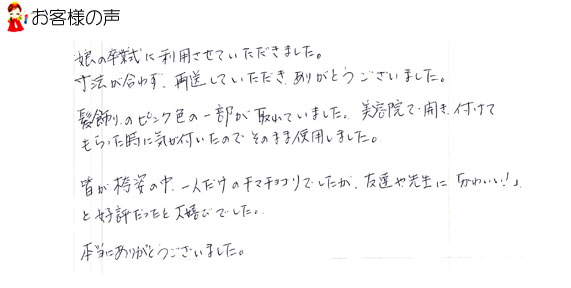 お客様の声
娘の卒業式に利用させていただきました。
寸法が合わず、再送していただき、ありがとうございました。
髪飾りのピンク色の一部が取れていました。美容院で開き、付けて
もらった時に気が付いたのでそのまま使用しました。
皆が袴姿の中、一人だけのチマチョゴリでしたが、友達や先生に「かわいい!」
と好評だったと大喜びでした。
本当にありがとうございました。